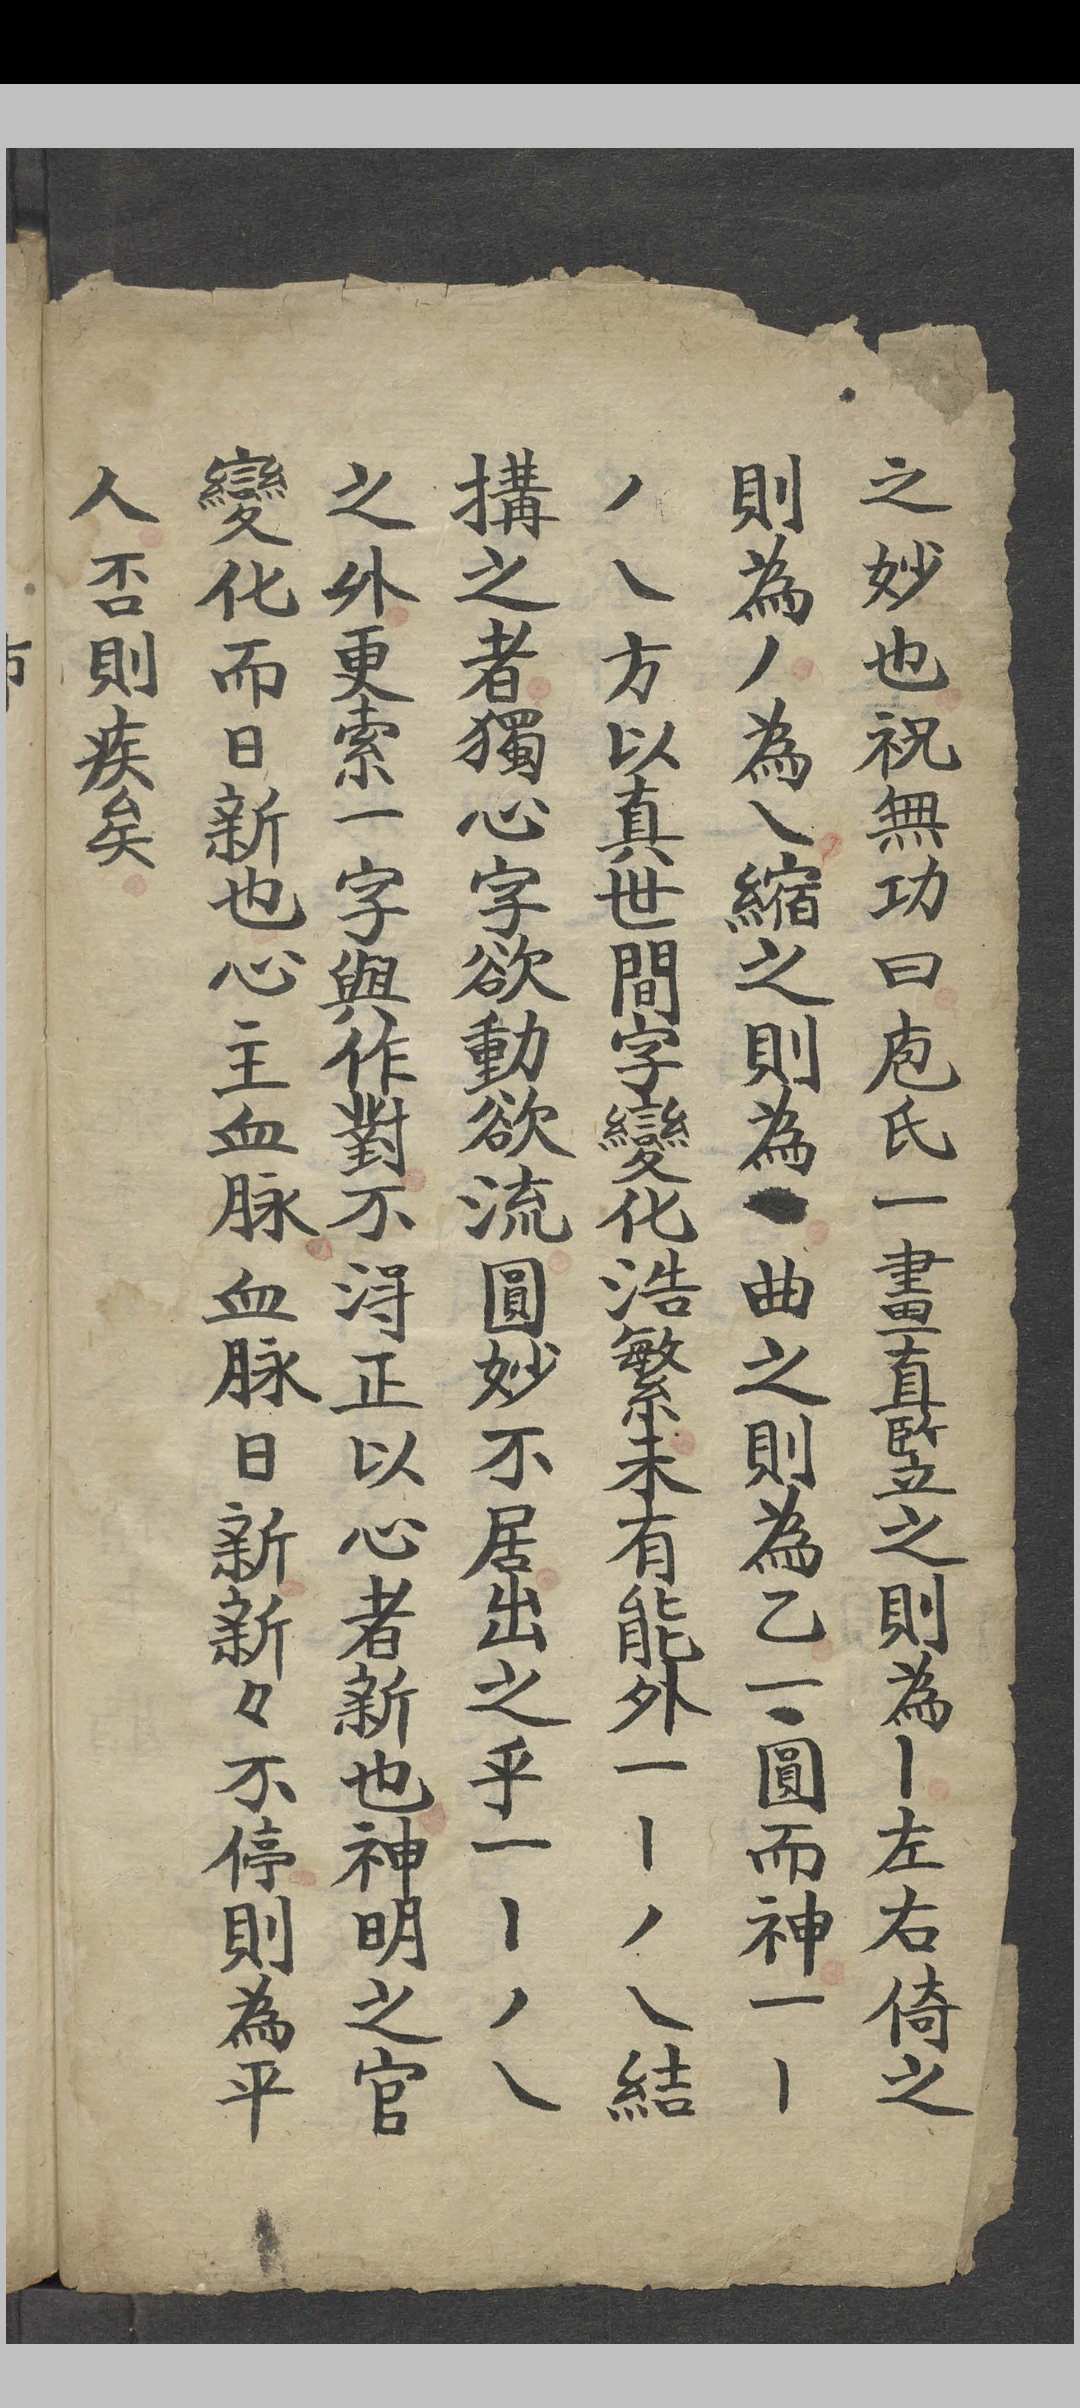 之妙也祝無功曰庖氏一畫直竪之則為丨左右倚之
則為丿為乀縮之則為丶曲之則為乙一丶圓而神一丨
丿乀方以真世間字變化浩繁未有能外一丨丿乀結
搆之者獨心字欲動欲流圓妙不居出之乎一丨丿乀
之外更索一字與作對不淂正以心者新也神明之官
變化而日新也心主血脉血脉日新新々不停則為平
人否則疾矣